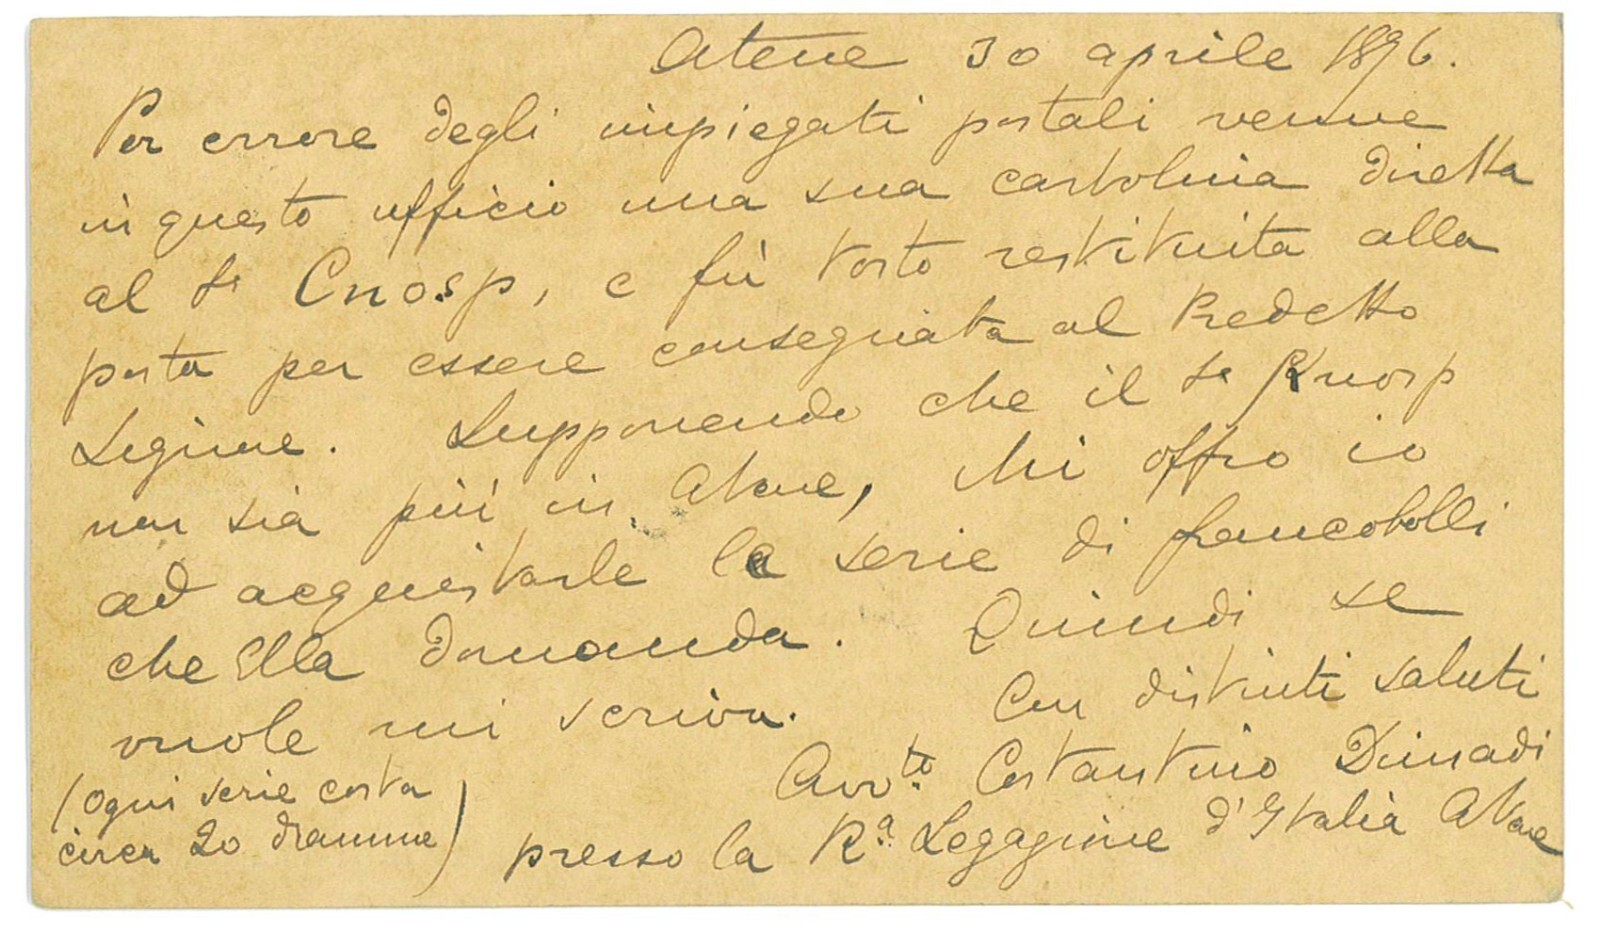 Atene 30 aprile 1896.
Per errore degli impiegati postali venne
in questo ufficio una sua cartolina diretta
al Sr Cnosp, e fù tosto restituita alla
posta per essere consegnata al Predetto
Signore. Supponendo che il Sr Knosp
non sia più in Atene, Mi offro io
ad acquistarle la serie di francobolli
che Ella domanda. Quindi se
vuole mi scriva. Con distinti saluti
(Ogni serie costa
circa 20 dramme)
Avvto. Costantino Dimadi
presso la Ra. Legazione d'Italia Atene